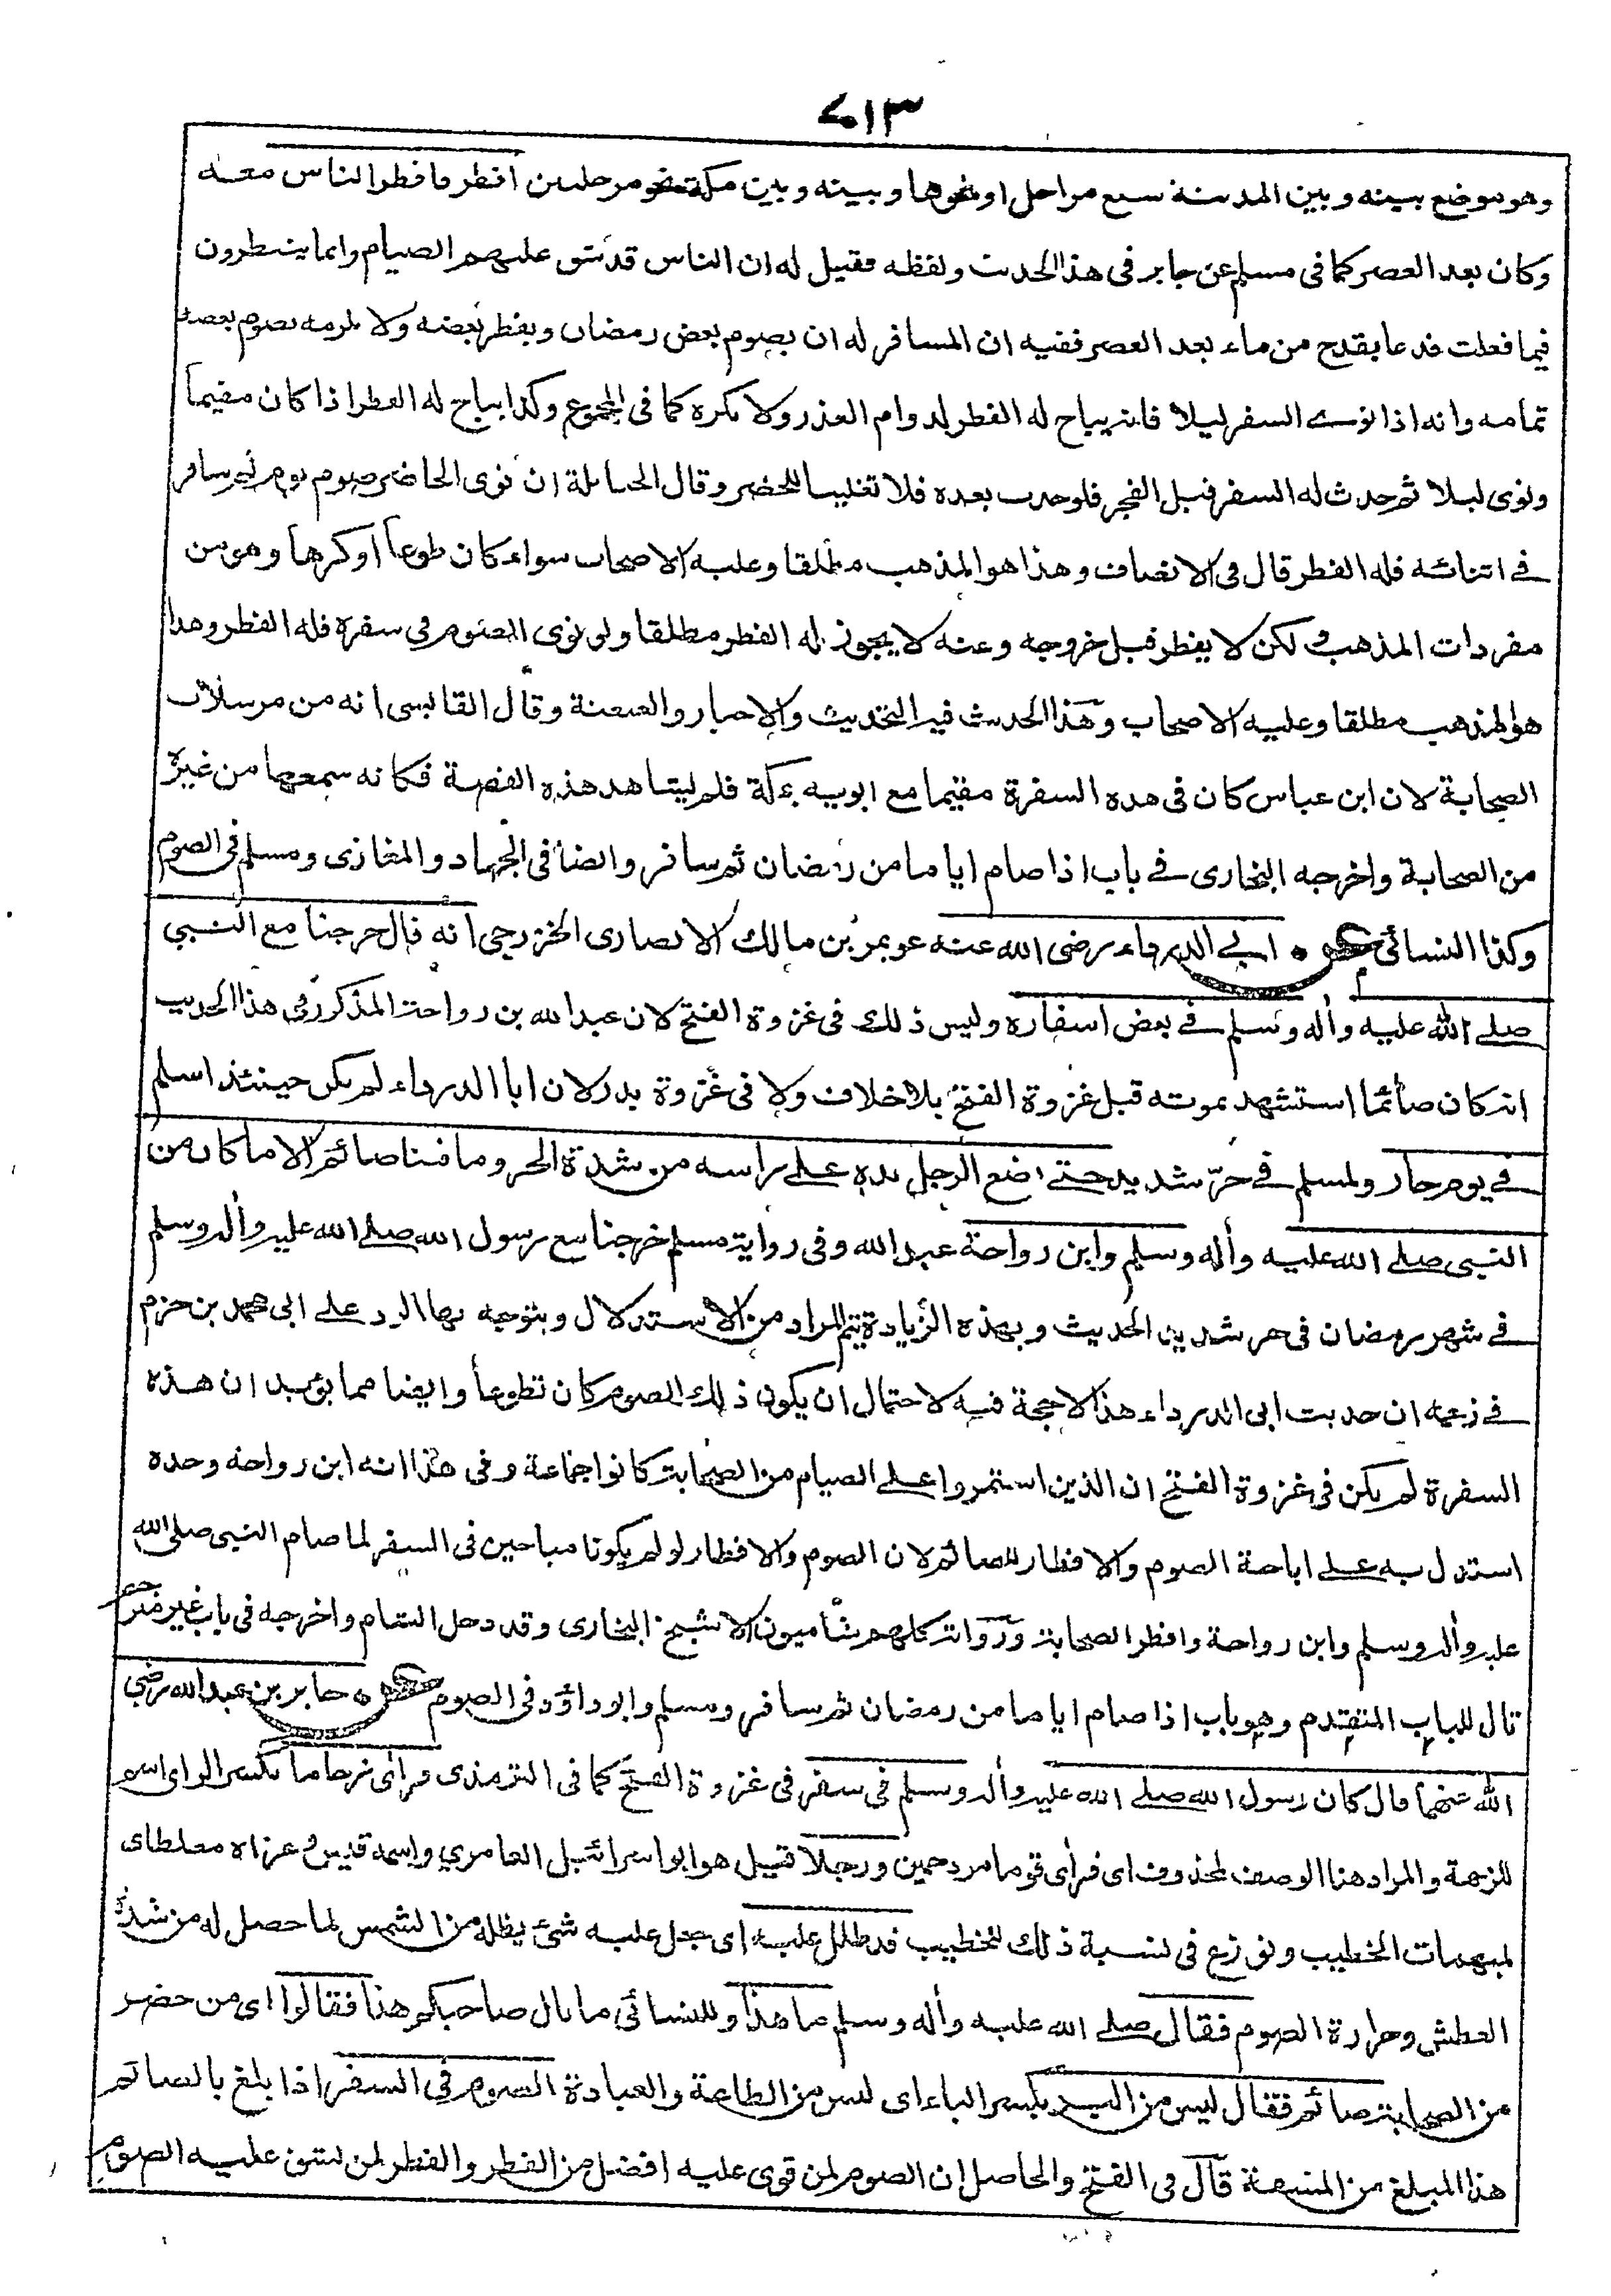 ٤١٣
وهو موضع بينه وبين المدينة سبع مراحل او نحوها وبينه وبين مكة نحو مرحلتين افطر فافطر الناس معه
وكان بعد العصر كما فى مسلم عن جابر فى هذا الحديث ولفظه فقيل له ان الناس قد شق عليهم الصيام وانما ينظرون
فيما فعلت فدعا بقدح من ماء بعد العصر ففيه ان المسافر له ان يصوم بعض رمضان ويفطر بعضه ولا يلزمه بصوم بعضه
تمامه وانه اذا نوى السفر ليلا فانه يباح له الفطر لدوام العذر ولا يكره كما فى المجموع وكذا يباح له الفطر اذا كان مقيما
ونوى ليلا ثم حدث له السفر قبل الفجر فلو حدث بعده فلا تغليبا للحضر وقال الحنابلة ان نوى الحاضر صوم يوم ثم سافر
فى اثنائه فله الفطر قال فى الانصاف وهذا هو المذهب مطلقا وعليه الاصحاب سواء كان طوعا او كرها وهو من
مفردات المذهب لكن لا يفطر قبل خروجه وعنه لا يجوز له الفطر مطلقا ولو نوى الصوم فى سفره فله الفطر وهذا
هو المذهب مطلقا وعليه الاصحاب وهذا الحديث فيه التحديث والاخبار والعنعنة وقال القابسى انه من مرسلات
الصحابة لان ابن عباس كان فى هذه السفرة مقيما مع ابويه بمكة فلم يشاهد هذه القصة فكانه سمعها من غيره
من الصحابة واخرجه البخارى فى باب اذا صام اياما من رمضان ثم سافر وايضا فى الجهاد والمغازى ومسلم فى الصوم
وكذا النسائى عن ابى الدرداء رضى الله عنه عويمر بن مالك الانصارى الخزرجى انه قال خرجنا مع النبى
صلى الله عليه وأله وسلم فى بعض اسفاره وليس ذلك فى غزوة الفتح لان عبد الله بن رواحة المذكور فى هذا الحديث
انه كان صائما استشهد بموته قبل غزوة الفتح بلا خلاف ولا فى غزوة بدر لان ابا الدرداء لم يكن حينئذ اسلم
فى يوم حار ولمسلم فى حرّ شديد حتى يضع الرجل يده على راسه من شدة الحر وما فينا صائم الا ما كان من
النبى صلى الله عليه وأله وسلم وابن رواحة عبد الله وفى رواية مسلم خرجنا مع رسول الله صلى الله عليه وأله وسلم
فى شهر رمضان فى حر شديد الحديث وبهذه الزيادة يتم المراد من الاستدلال ويتوجه بها الرد على ابى محمد بن حزم
فى زعمه ان حديث ابى الدرداء هذا لا حجة فيه لاحتمال ان يكون ذلك الصوم كان تطوعا وايضا مما يؤيد ان هذه
السفرة لم يكن فى غزوة الفتح ان الذين استمروا على الصيام من الصحابة كانوا جماعة وفى هذا انه ابن رواحة وحده
استدل به على اباحة الصوم والافطار للصائم لان الصوم والافطار لو لم يكونا مباحين فى السفر لما صام النبى صلى الله
عليه وأله وسلم وابن رواحة وافطر الصحابة ورواته كلهم شاميون الا شيخ البخارى وقد دخل الشام واخرجه فى باب غير مترجم
تال للباب المتقدم وهو باب اذا صام اياما من رمضان ثم سافر ومسلم وابو داؤد فى الصوم عن جابر بن عبد الله رضى
الله عنهما قال كان رسول الله صلى الله عليه وأله وسلم فى سفر فى غزوة الفتح كما فى الترمذى فرأى زحاما بكسر الزاى اسم
للزحمة والمراد هنا الوصف لمحذوف اى فرأى قوما مزدحمين ورجلا قيل هو ابو اسرائيل العامرى واسمه قيس وعزاه مغلطاى
لمبهمات الخطيب ونوزع فى نسبة ذلك للخطيب قد ظلل عليه اى جعل عليه شئ يظله من الشمس لما حصل له من شدة
العطش وحرارة الصوم فقال صلى الله عليه وأله وسلم ما هذا وللنسائى ما بال صاحبكم هذا فقالوا اى من حضر
من الصحابة صائم فقال ليس من البر بكسر الباء اى ليس من الطاعة والعبادة الصوم فى السفر اذا بلغ بالصائم
هذا المبلغ من المشقة قال فى الفتح والحاصل ان الصوم لمن قوى عليه افضل من الفطر والفطر لمن شق عليه الصوم